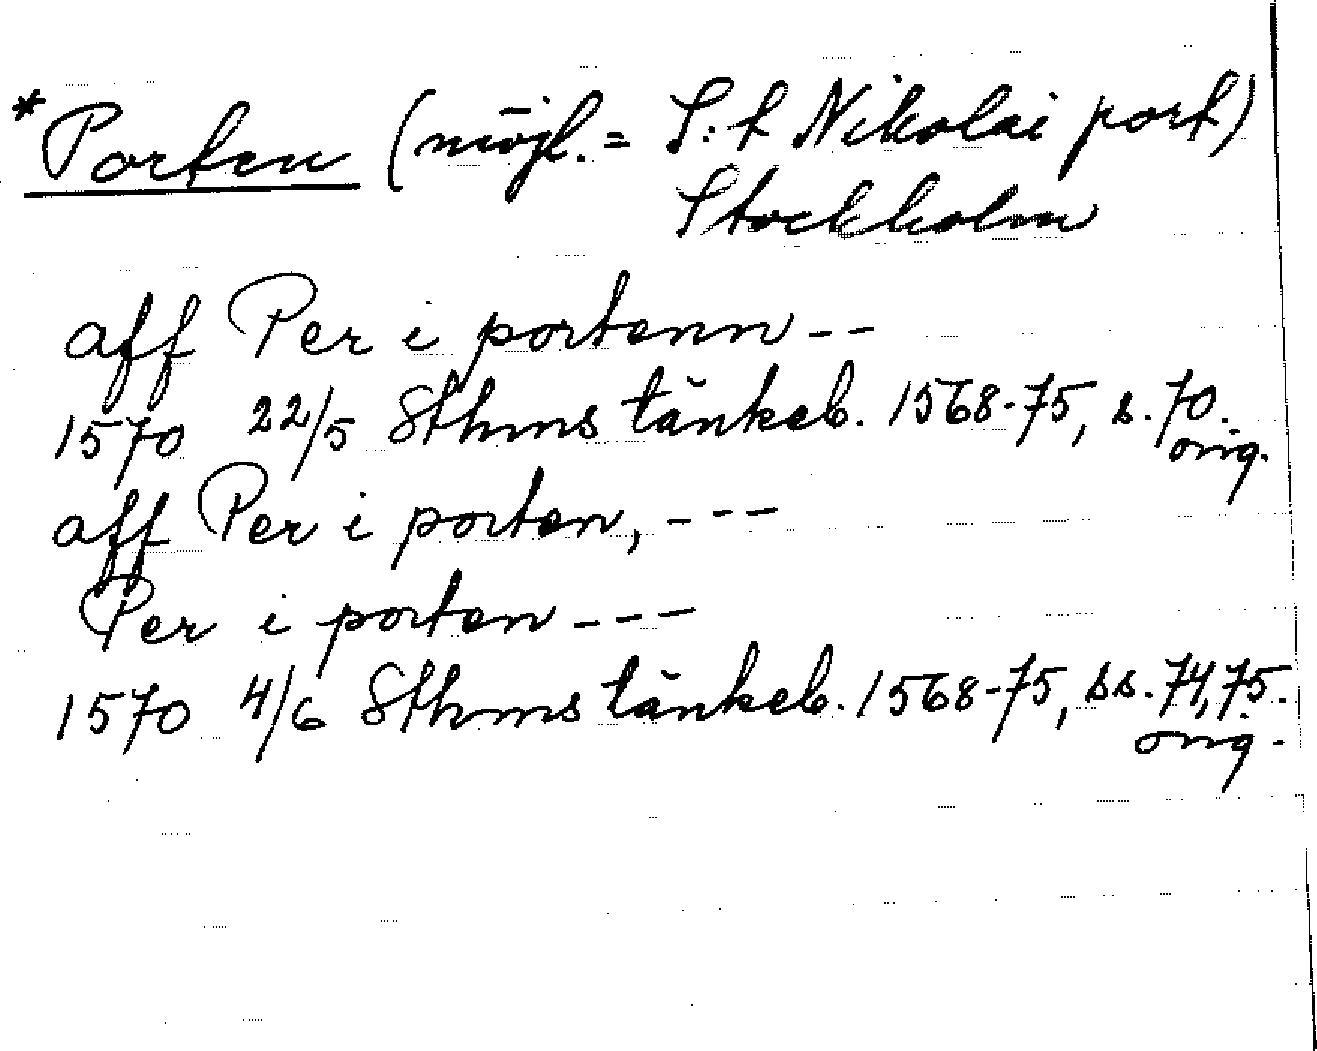 *Porten (möjl. = S:t Nikolai port)
Stockholm
aff Per i portenn --
1570 22/5 Sthms tänkeb. 1568-75, s. 70.
orig.
aff Per i porten, ---
Per i porten ---
1570 4/6 Sthms tänkeb. 1568-75, ss. 74, 75.
orig.